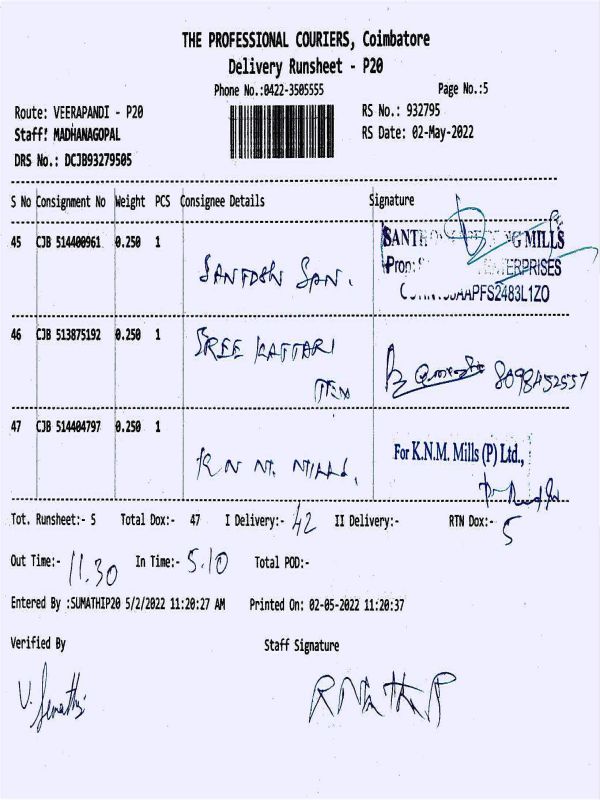 THE PROFESSIONAL COURIERS, Coimbatore
Delivery Runsheet - P20
Phone No.:0422-3505555 Page No.:5
Route: VEERAPANDI - P20 RS No.: 932795
Staff: MADHANAGOPAL RS Date: 02-May-2022
DRS No.: DCJB93279505
S No Consignment No Weight PCS Consignee Details Signature
45 CJB 514400961 0.250 1
SANTOSH SPN.
SANTH G MILLS
Prop: ENTERPRISES
AAPFS2483L1ZO
46 CJB 513875192 0.250 1 SREE KATTARI
TEX
8098452557
47 CJB 514404797 0.250 1
K N M. MILLS.
For K.N.M. Mills (P) Ltd.,
Tot. Runsheet:- 5 Total Dox:- 47 I Delivery:- 42 II Delivery:- RTN Dox:- 5
Out Time:- 11.30 In Time:- 5.10 Total POD:-
Entered By :SUMATHIP20 5/2/2022 11:20:27 AM Printed On: 02-05-2022 11:20:37
Verified By Staff Signature
V. Sumathi